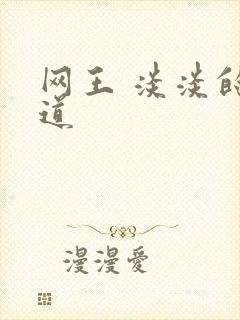 网王 淡淡的
道
漫漫愛